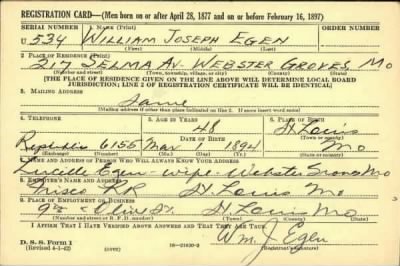 REGISTRATION CARD—(Men born on or after April 28, 1877 and on or before February 16, 1897)
SERIAL NUMBER 1. NAME (Print) ORDER NUMBER
U 534 WILLIAM JOSEPH EGEN
(First) (Middle) (Last)
2. PLACE OF RESIDENCE (Print)
217 SELMA AV. WEBSTER GROVES MO
(Number and street) (Town, township, village, or city) (County) (State)
[THE PLACE OF RESIDENCE GIVEN ON THE LINE ABOVE WILL DETERMINE LOCAL BOARD
JURISDICTION; LINE 2 OF REGISTRATION CERTIFICATE WILL BE IDENTICAL]
3. MAILING ADDRESS
Same
[Mailing address if other than place indicated on line 2. If same insert word same]
4. TELEPHONE 5. AGE IN YEARS 6. PLACE OF BIRTH
48 St Louis
DATE OF BIRTH (Town or county)
Republic 6155 Mar 1 1894 Mo
(Exchange) (Number) (Mo.) (Day) (Yr.) (State or country)
7. NAME AND ADDRESS OF PERSON WHO WILL ALWAYS KNOW YOUR ADDRESS
Lucille Egen - wife - Webster Groves Mo
8. EMPLOYER'S NAME AND ADDRESS
Frisco RR St Louis Mo
9. PLACE OF EMPLOYMENT OR BUSINESS
9th & Olive St. St Louis Mo
(Number and street or R. F. D. number) (Town) (County) (State)
I AFFIRM THAT I HAVE VERIFIED ABOVE ANSWERS AND THAT THEY ARE TRUE.
D. S. S. Form 1
(Revised 4-1-42) 16—21630-2 Wm J. Egen
(Registrant's signature)